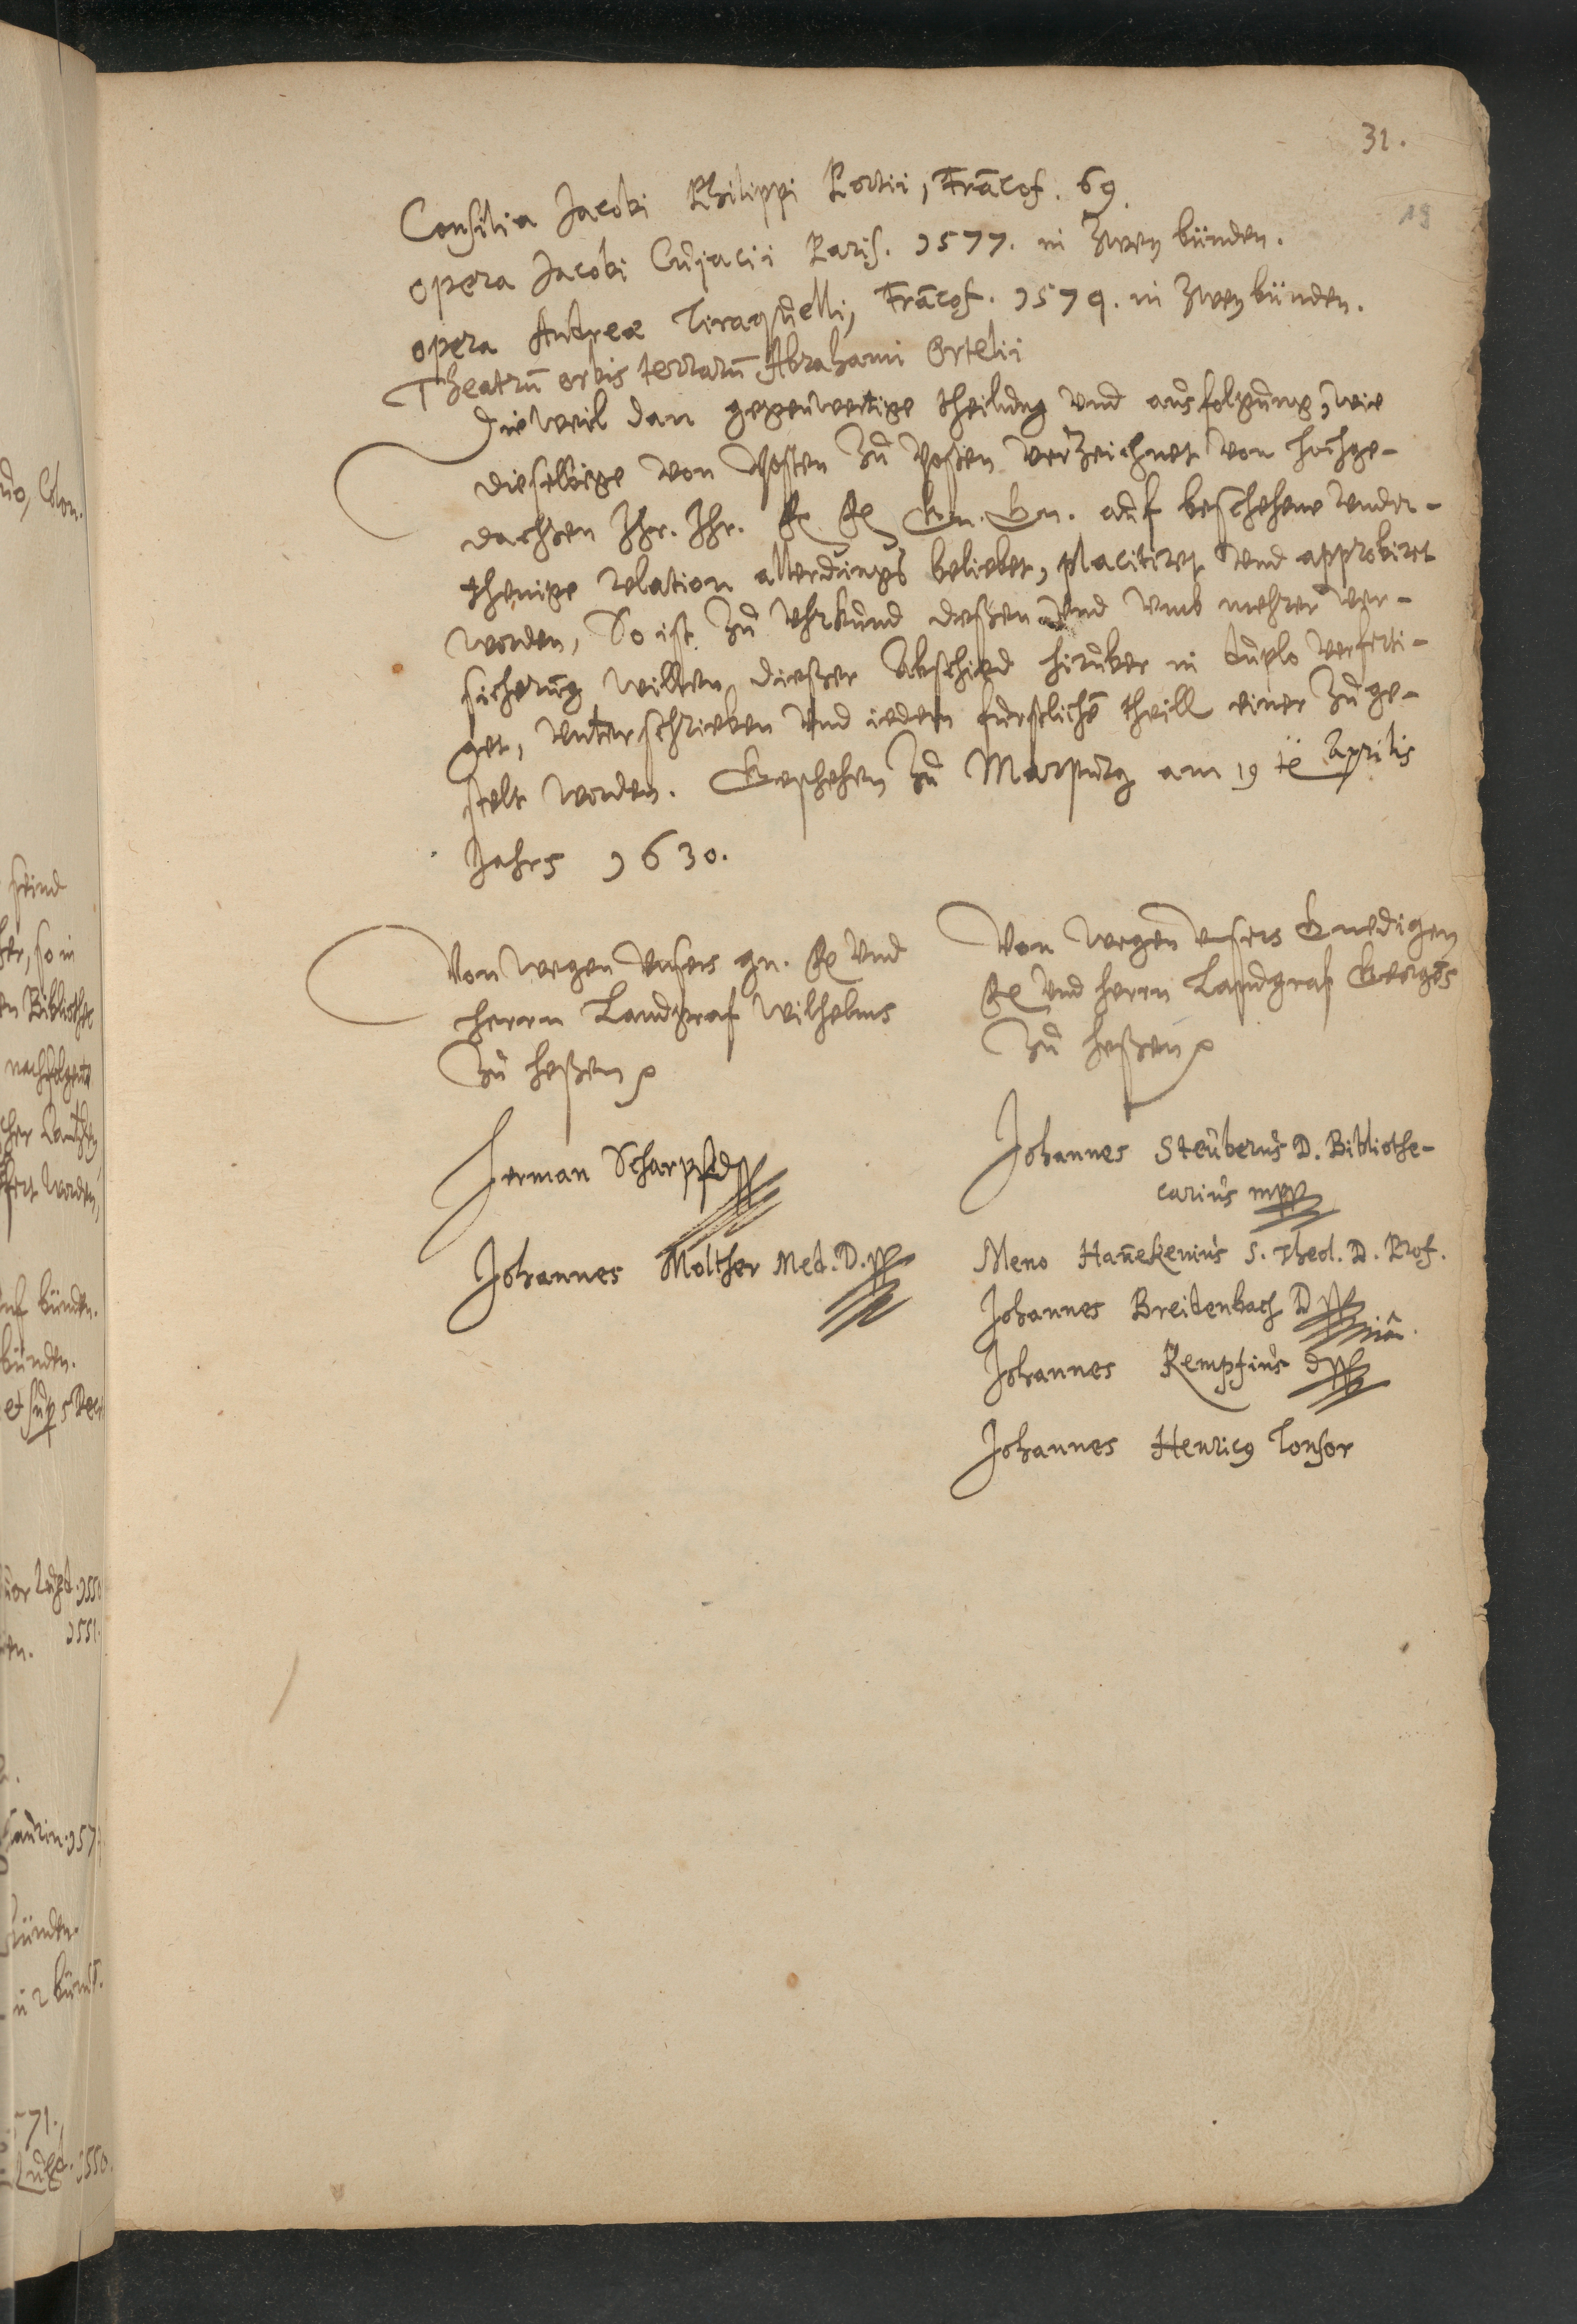 31.
19
Consilia Jacobi Philippi Portii, Francof. 69.
opera Jacobi Cujacii Paris. 1577. in zwey bünden.
opera Andreæ Tiraquelli, Francof. 1574. in zwey bünden.
Theatrū orbis terrarū Abrahami Ortelii
Dieweil dan gegenwertige theilung und ausfolgung, wie
dieselbige von Posten zu Posten verzeichnet von hochge-
dachten Ihr. Ihr. F. F. Gn. Gn. auf beschehene under-
thenige relation allerdings beliebet, placitiret und approbirt
worden, So ist zu Uhrkund deßen und umb mehrer ver-
sicherung willen dießer Abschied hirüber in duplo verferti-
get, unterschrieben und iedem fürstlichē theill einer zuge-
stelt worden. Geschehen zu Marpurg am 19 tē Aprilis
Jahrs 1630.
Von wegen unsers gn. F. und
Herrn Landgraf Wilhelms
zu Heßen
Herman Scharpff D
Johannes Molther Med. D.
Von wegen unsers Gnedigen
F. und Herrn Landgraf Georgs
zu Heßen
Johannes Steuberus D. Bibliothe-
carius mpp
Meno Han̄ekenius S. Theol. D. Prof.
Johannes Breidenbach D
Johannes Kempfius D
Johannes Henricus Tonsor
do, Colon.
seind
her, so in
en Bibliothec
nachfolgente
fert worden,
bünden.
bünden.
1550
1551.
en.
bünden.
71.
1550.